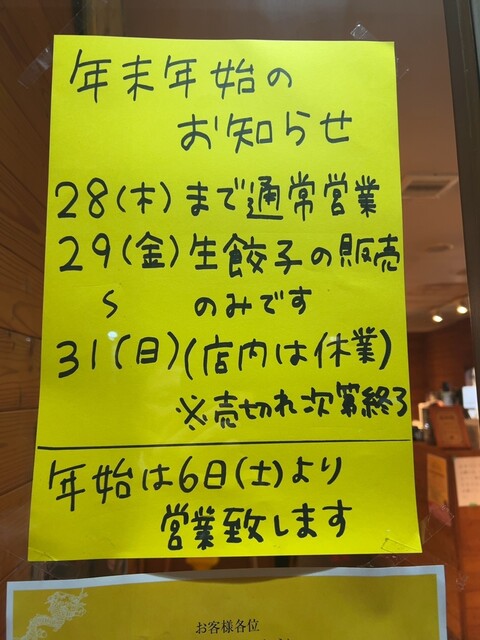 年末年始の
お知らせ
28(木)まで通常営業
29(金)生餃子の販売
〜 のみです
31(日)(店内は休業)
※売切れ次第終了
年始は6日(土)より
営業致します
お客様各位